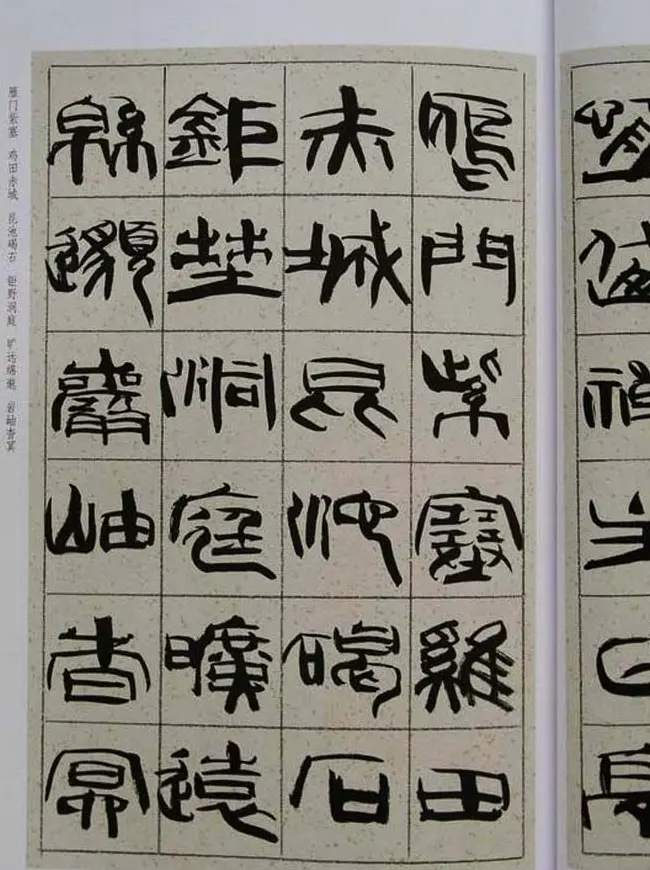 鴈門紫塞雞田
赤城昆池碣石
鉅埜洞庭曠遠
緜邈巖岫杳冥
雁门紫塞 鸡田赤城 昆池碣石 钜野洞庭 旷远绵邈 岩岫杳冥